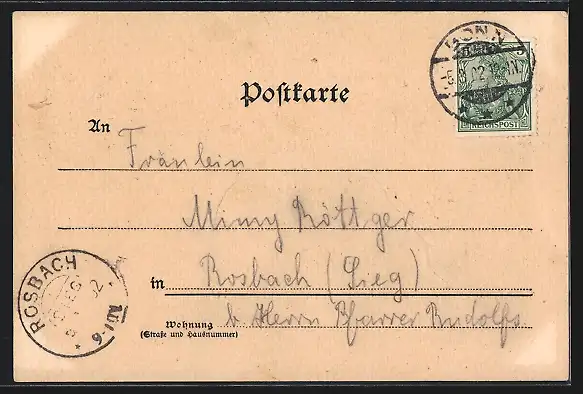 BONN
REICHSPOST
Postkarte
An
Fräulein
Mimy Röttger
in Rosbach (Sieg)
ROSBACH
Wohnung
(Straße und Hausnummer)
b. Herrn Pfarrer Rudolfs